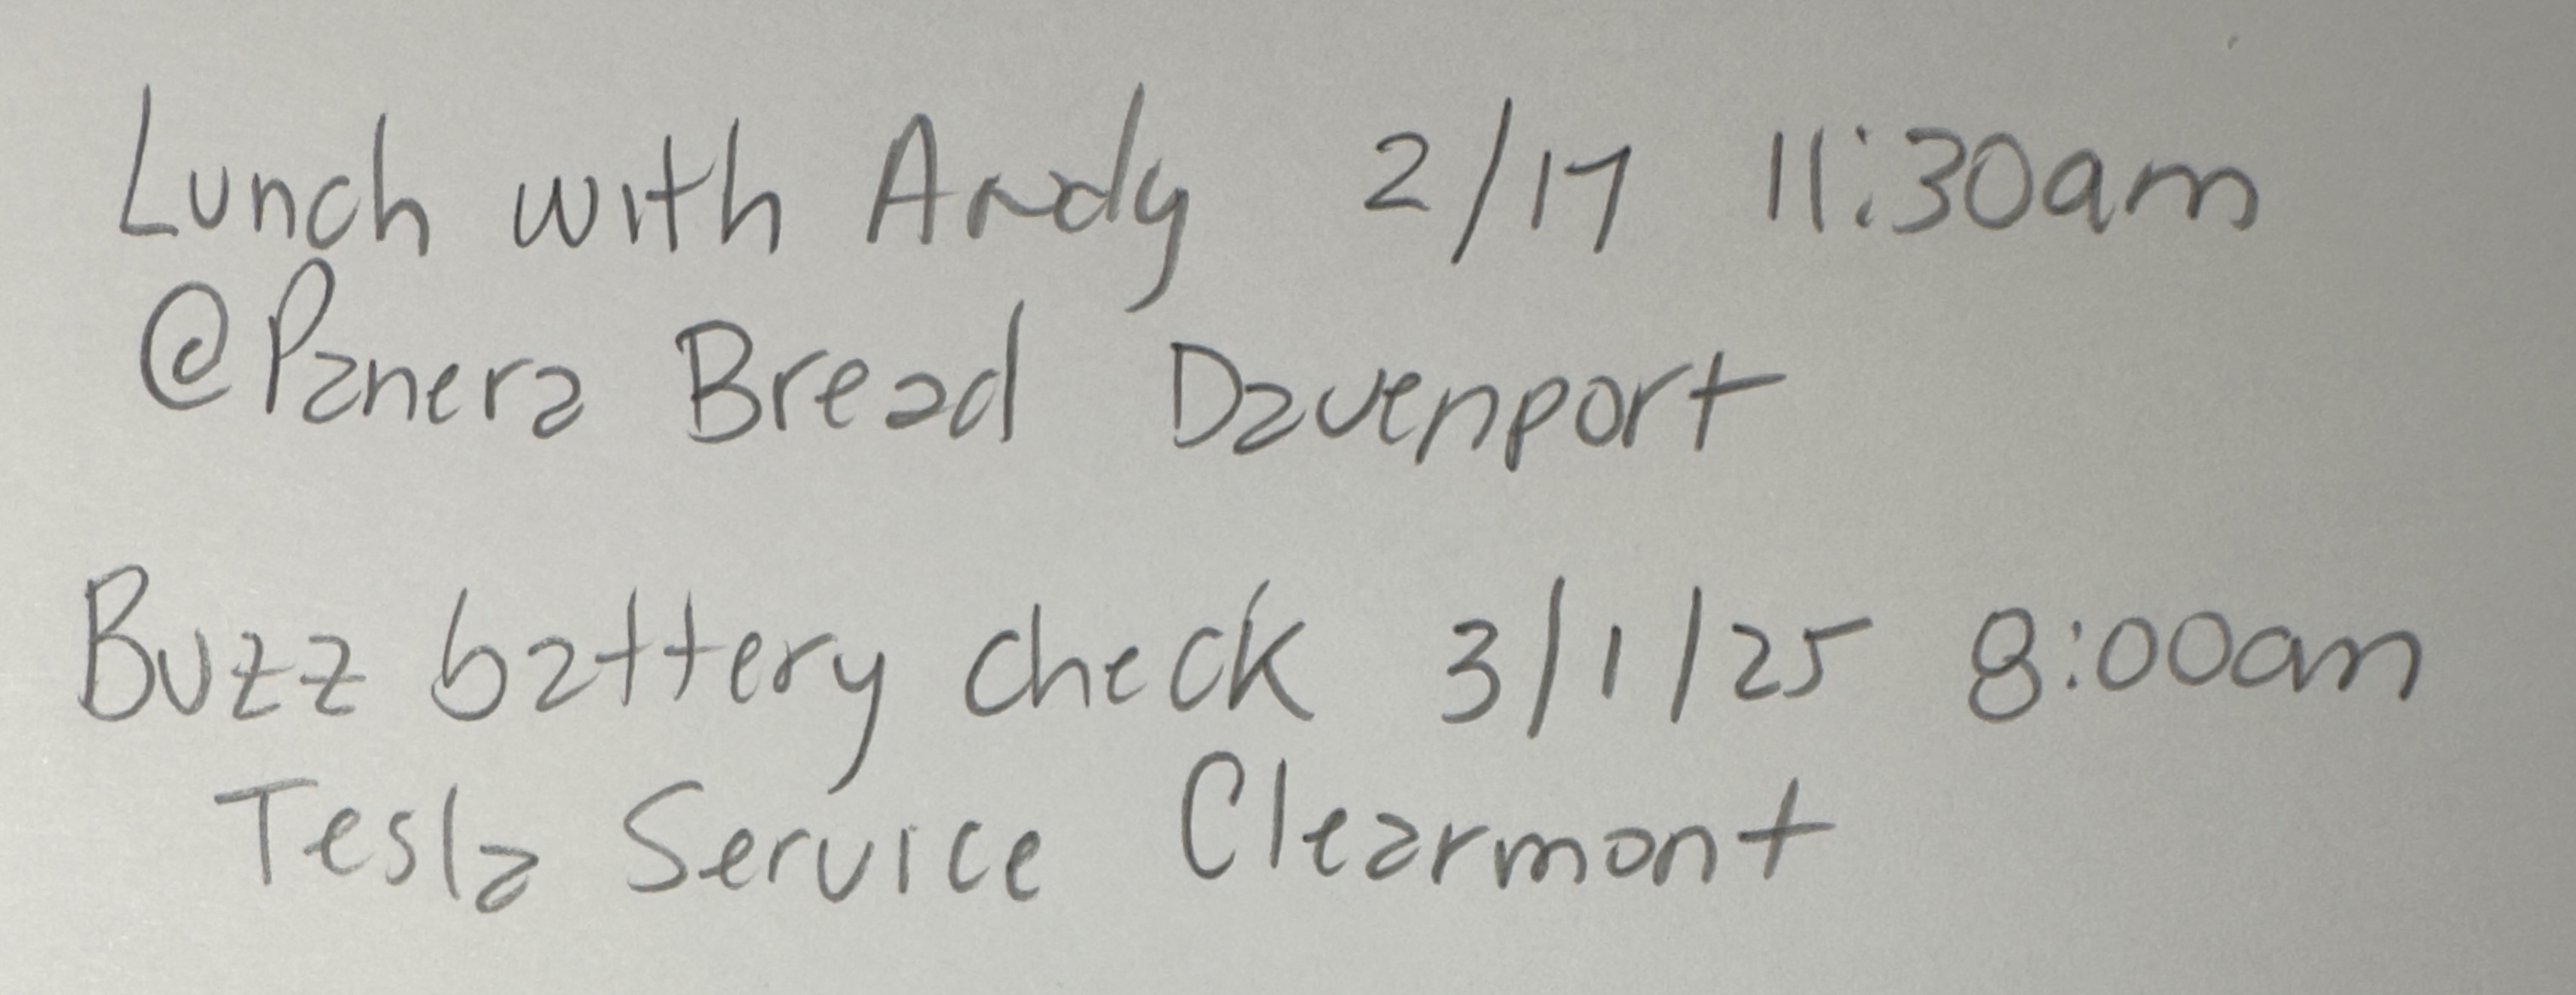 Lunch with Andy 2/17 11:30am
@Panera Bread Davenport
Buzz battery check 3/1/25 8:00am
Tesla Service Clearmont